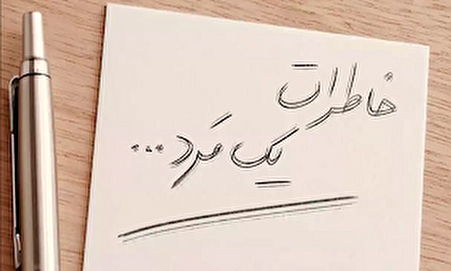 خاطرات
یک مرد...